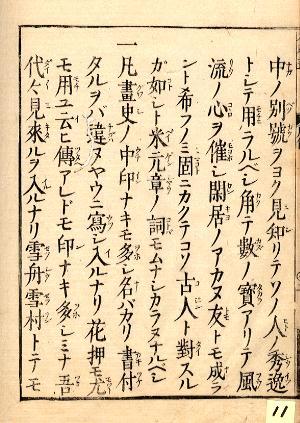 中ノ別號ヲヨク見知リテソノ人ノ秀逸
トシテ用ラルベシ角テ數ノ寳アリテ風
流ノ心ヲ催シ閑居ノアカヌ友トモ成ラ
ント希フノミ固ニカクテコソ古人ト對スル
ガ如シト米元章ノ詞モムナシカラヌナルベシ
一
凡畫史ノ中印ナキモ多シ名バカリ書付
タルヲバ違ヌヤウニ寫シ入ルナリ花押モ尤
モ用ユムヒ傳アレドモ印ナキ多シミナ吾
代々見來ルヲ入ルナリ雪舟雪村トテモ
11